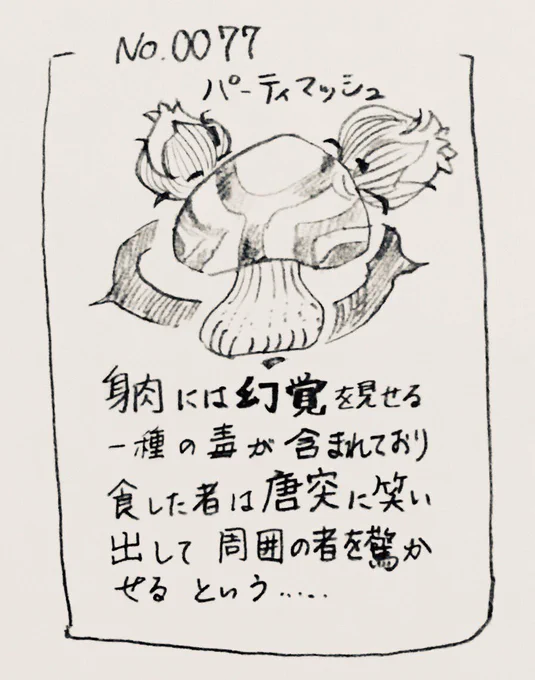 No.0077
パーティマッシュ
身肉には幻覚を見せる
一種の毒が含まれており
食した者は唐突に笑い
出して周囲の者を驚か
せるという……